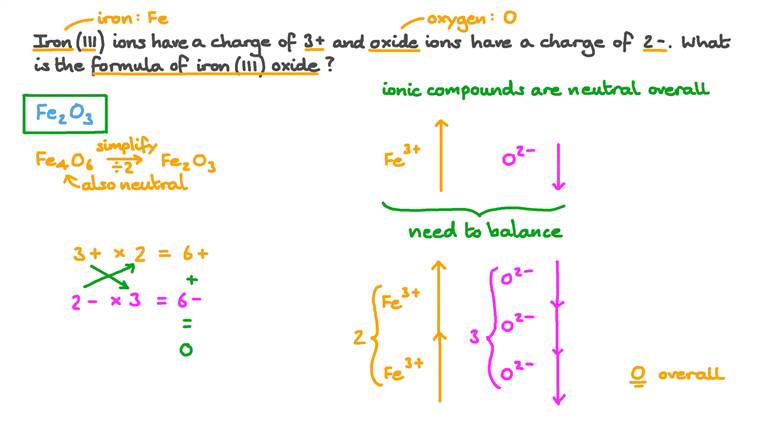 iron: Fe
oxygen: O
Iron (III) ions have a charge of 3+ and oxide ions have a charge of 2-. What
is the formula of iron (III) oxide?
Fe₂O₃
Fe₄O₆ simplify ÷2 Fe₂O₃
also neutral
3+ × 2 = 6+
+
2- × 3 = 6-
=
0
ionic compounds are neutral overall
Fe³⁺ O²⁻
need to balance
2 Fe³⁺
Fe³⁺
3 O²⁻
O²⁻
O²⁻
0 overall